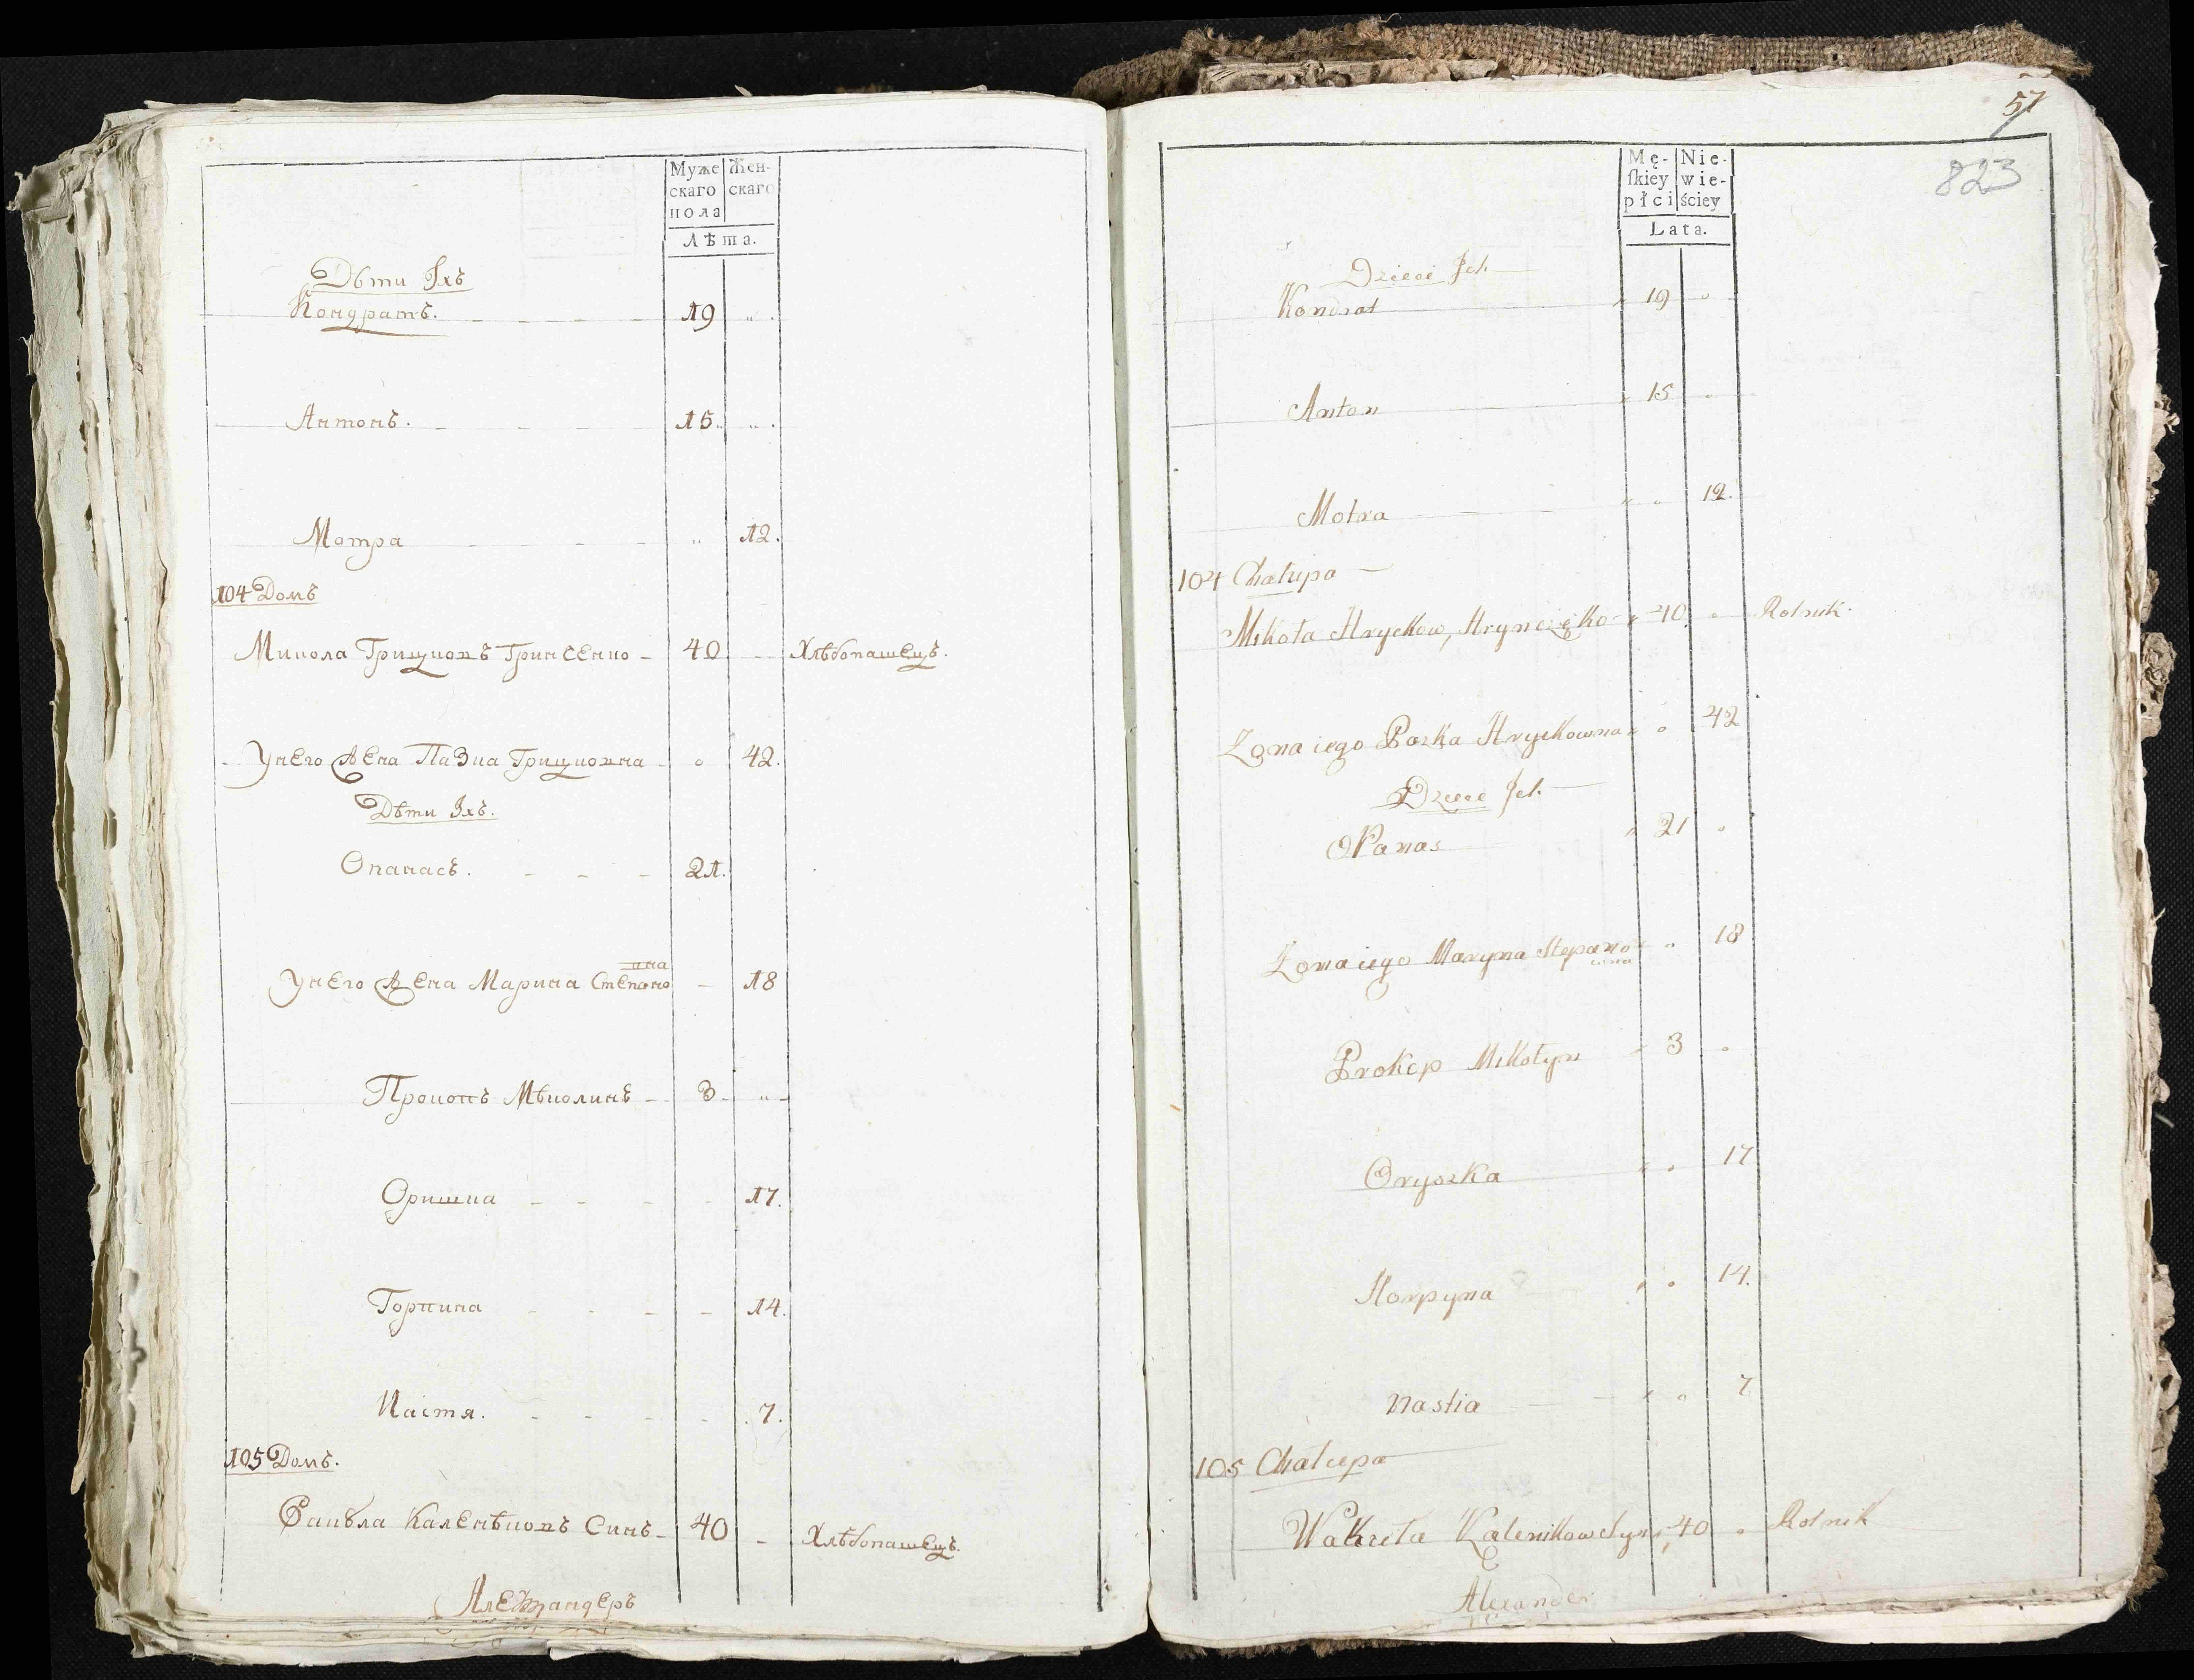 Муже
скаго
пола
Жен-
скаго
Лѣта.
Дѣти Ихъ
Кондратъ. 19 "
Антонъ. 15. "
Мотра " 12.
104 Домъ
Микола Грицковъ Гринченко 40 Хлѣбопашецъ.
У него Жена Пазка Грицковна 42.
Дѣти Ихъ.
Опанасъ. 21.
У него Жена Марина Степано
вна 18
Прокопъ Мѣколинъ 3 "
Оришка 17.
Горпина 14.
Настя. 7.
105 Домъ.
Калѣниковъ Синъ 40 Хлѣбопашецъ.
Александеръ
57
823
Mę-
ſkiey
płci
Nie-
wie-
ściey
Lata.
Dzieci Ich
Kondrat 19
Anton 15
Motra 12.
104 Chałupa
Mikoła Hryckow, Hrynczęko 40 Rolnik
Zona iego Pazka Hryckowna 42
Dzieci Ich
OPanas 21
Zona iego Maryna Stepano
wna 18
Prokop Mikołyn 3
Oryszka 17
Horpyna 14.
Nastia 7
105 Chałupa
Wakuła Kalenikow Syn 40 Rolnik
Alexander